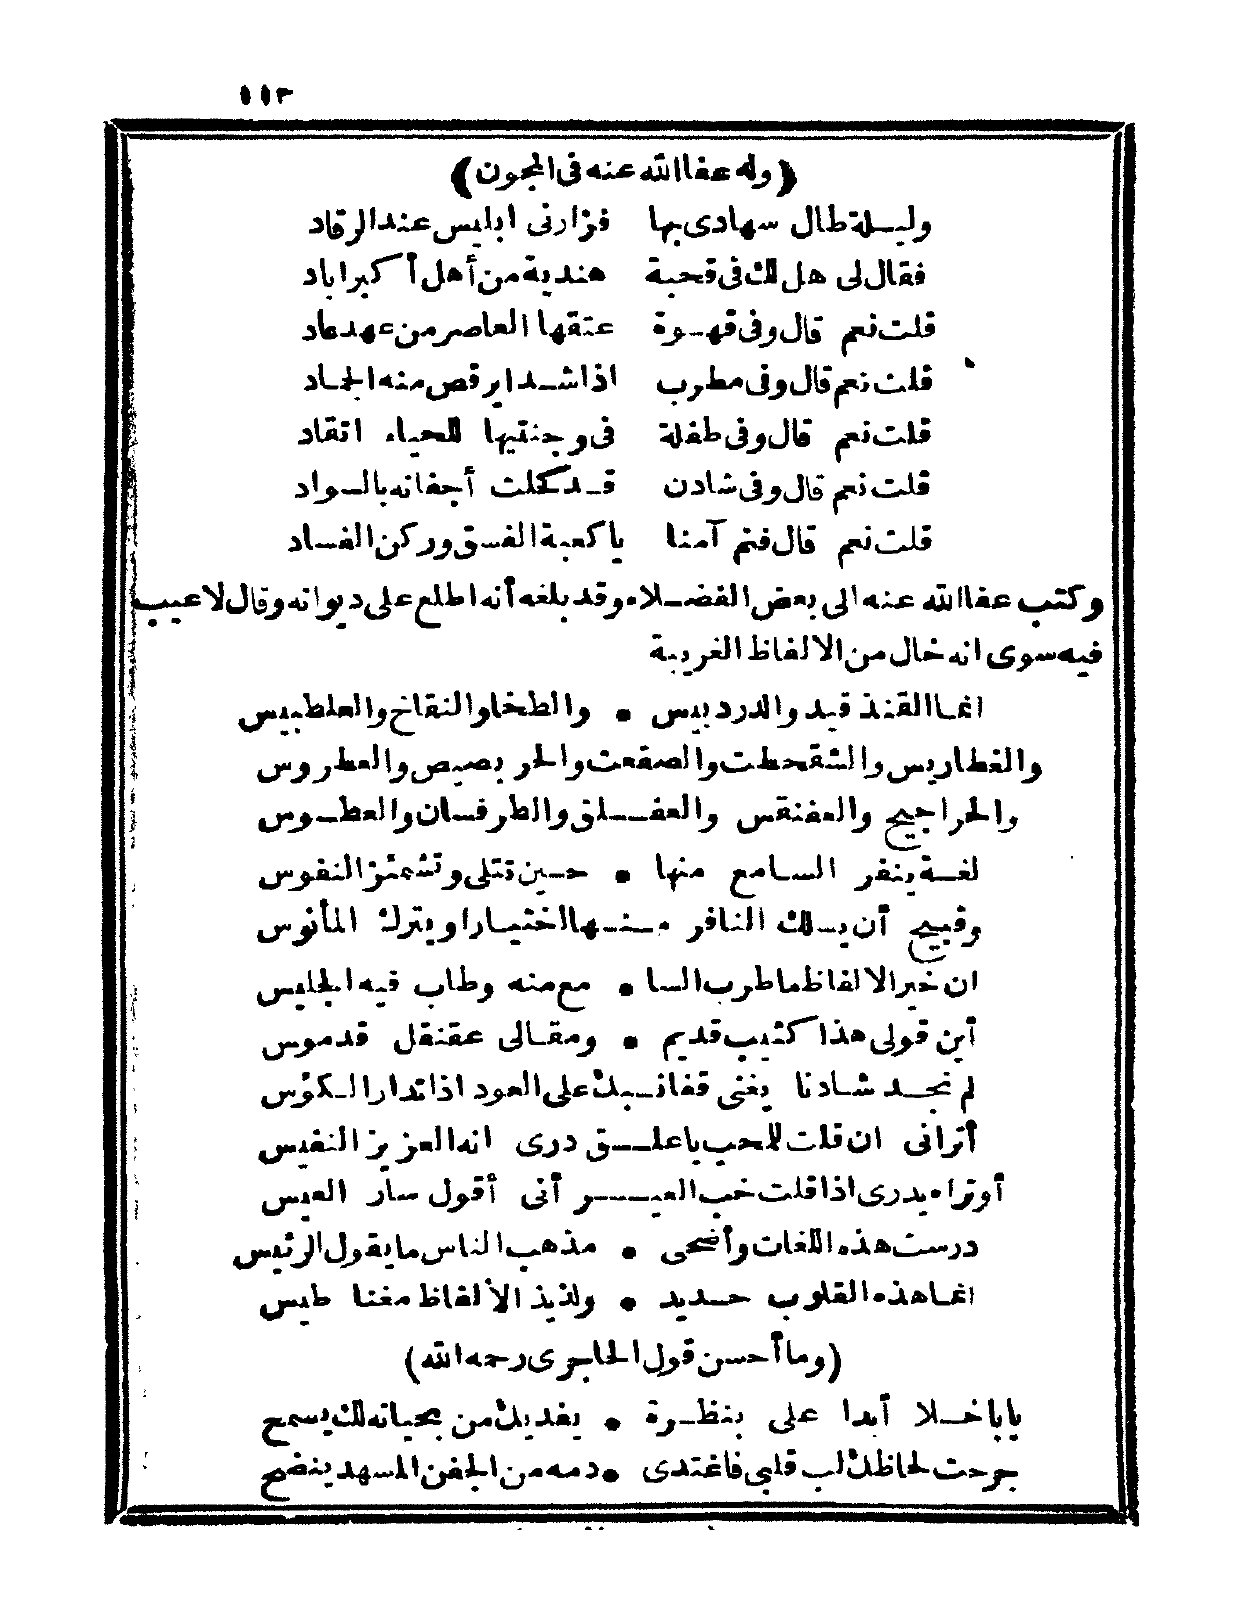 ١١٣
(وله عفا الله عنه فى المجون)
وليلة طال سهادى بها فزارنى ابليس عند الرقاد
فقال لى هل لك فى قحبة هندية من أهل أكبراباد
قلت نعم قال وفى قهوة عتقها العاصر من عهد عاد
قلت نعم قال وفى مطرب اذا شدا يرقص منه الجماد
قلت نعم قال وفى طفلة فى وجنتيها للحياء اتقاد
قلت نعم قال وفى شادن قد كحلت أجفانه بالسواد
قلت نعم قال فنم آمنا يا كعبة الفسق وركن الفساد
وكتب عفا الله عنه الى بعض الفضلاء وقد بلغه أنه اطلع على ديوانه وقال لا عيب
فيه سوى انه خال من الالفاظ الغريبة
انما القنذ قيد والدردبيس • والطخا والنقاخ والعلطبيس
والغطاريس والشقحطت والصقعت والحر بصيص والعطروس
والحراجيج والعفنقس والعفلق والطرفسان والعطوس
لغة ينفر السامع منها • حين تتلى وتشمئز النفوس
وقبيح أن يسلك النافر منها اختيارا ويترك المأنوس
ان خير الالفاظ ما طرب السا • مع منه وطاب فيه الجليس
أين قولى هذا كثيب قديم • ومقالى عقنقل قدموس
لم نجد شادنا يغنى قفا نبك على العود اذ اتدار الكؤس
أترانى ان قلت للحب يا علق درى انه العزيز النفيس
أو تراه يدرى اذا قلت خب العير أنى أقول سار العيس
درست هذه اللغات وأضحى • مذهب الناس ما يقول الرئيس
انما هذه القلوب حديد • ولذيذ الألفاظ مغنا طيس
(وما أحسن قول الحاجرى رحمه الله)
يا باخلا أبدا على بنظرة • يفديك من بحياته لك يسمح
جرحت لحاظك لب قلبى فاغتدى • دمه من الجفن المسهد ينضح